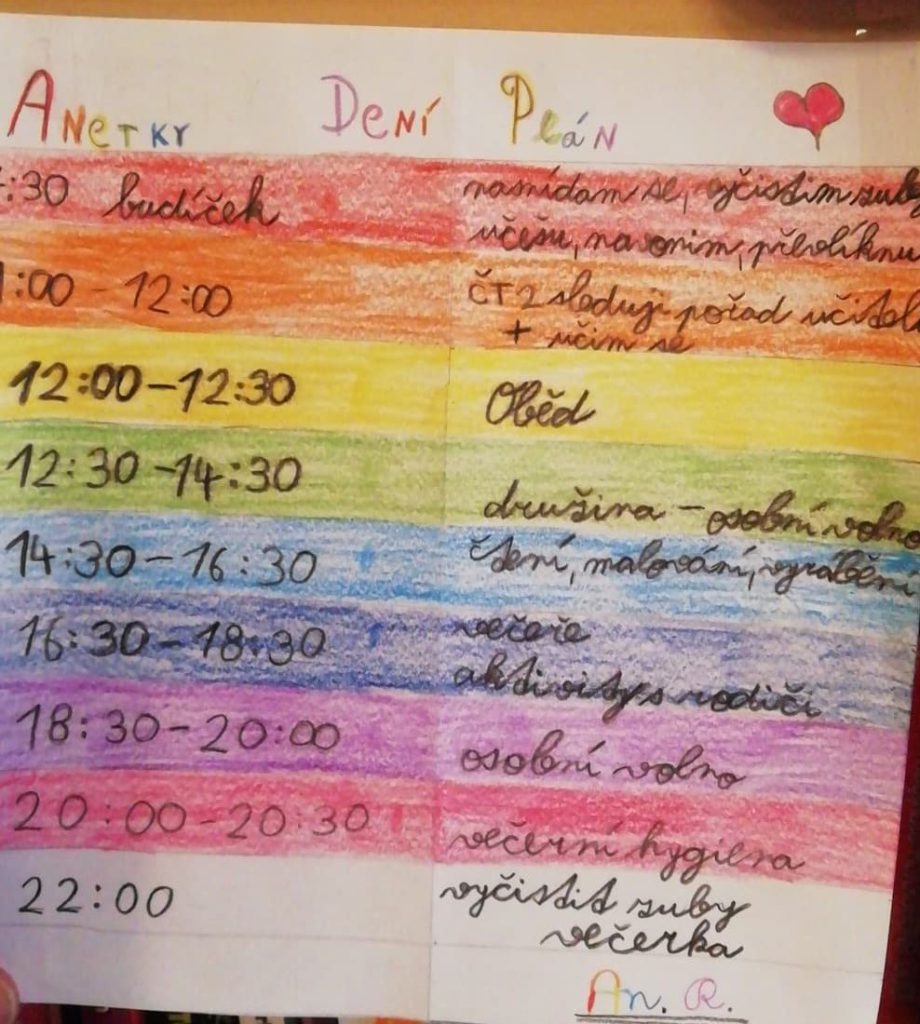 ANETKY DENÍ PLÁN
:30 budíček
nasnídam se, vyčistim zuby
učešu, navonim, převlíknu
:00 - 12:00
ČT2 sleduji pořad učitel
+ učim se
12:00-12:30 Oběd
12:30-14:30
družina - osobní volno
14:30-16:30 čtení, malování, vyrábění
16:30-18:30 večeře
aktivity s rodiči
18:30-20:00
osobní volno
20:00-20:30
večerní hygiena
22:00 vyčistit zuby
večerka
An. R.